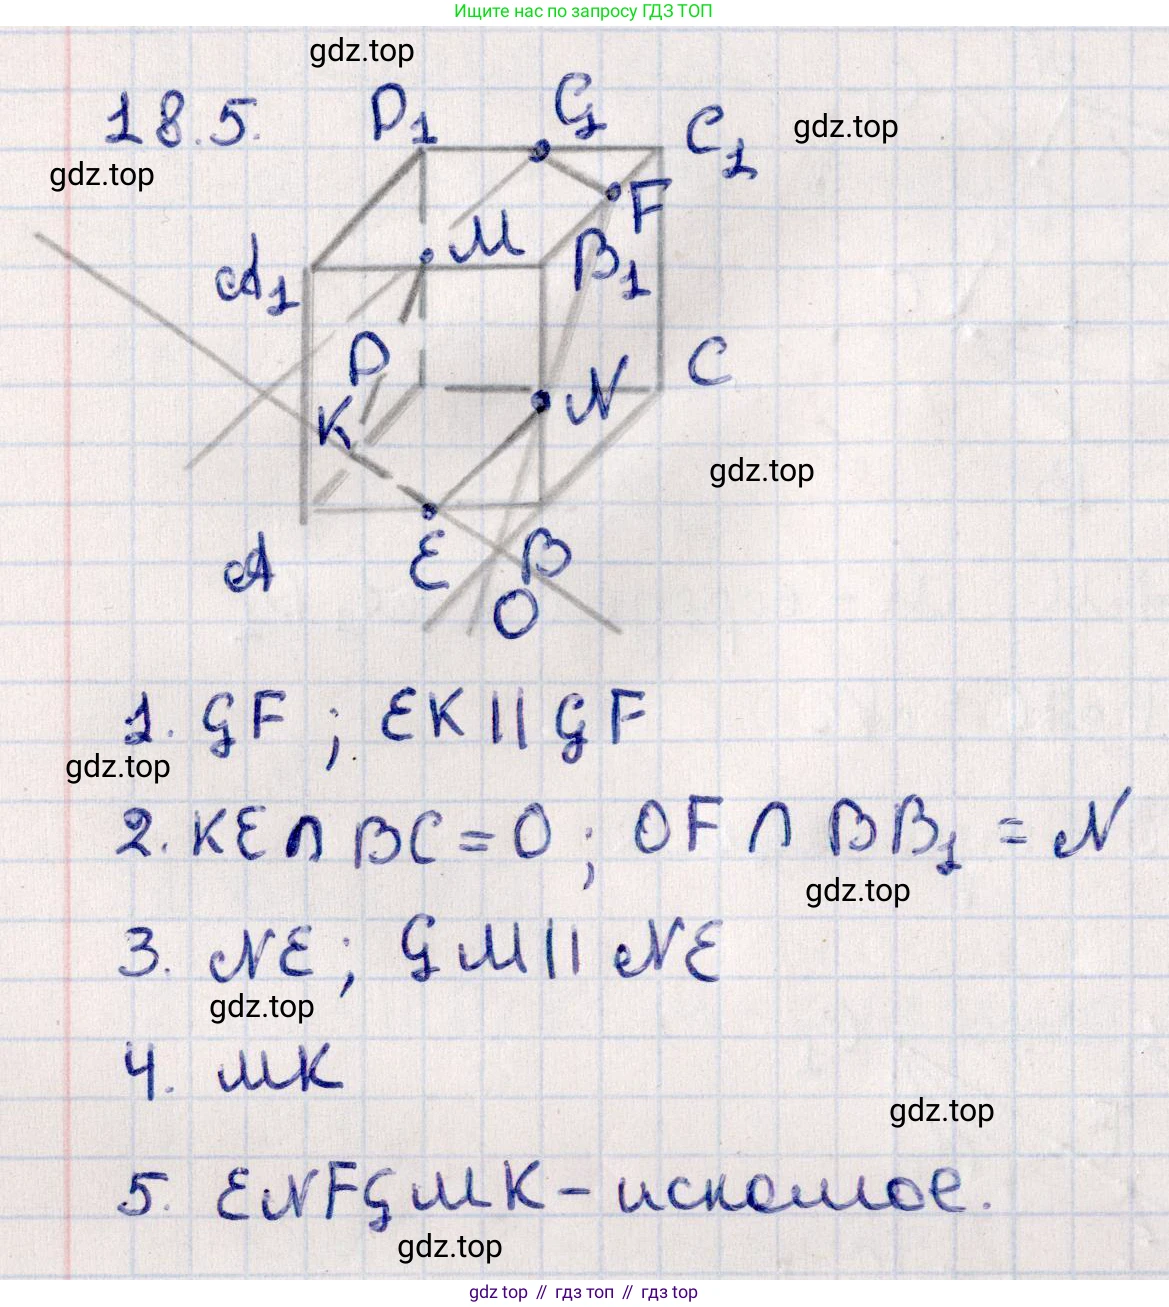 Ищите нас по запросу ГДЗ ТОП
gdz.top
18.5.
D₁
G
C₁
gdz.top
gdz.top
F
M
A₁
B₁
D
C
K
N
gdz.top
A
E
B
O
1. GF ; EK || GF
gdz.top
2. KE ∩ BC = O ; OF ∩ BB₁ = N
gdz.top
3. NE ; GM || NE
gdz.top
4. MK
gdz.top
5. ENFGMK - искомое.
gdz.top
gdz top // гдз топ // gdz top